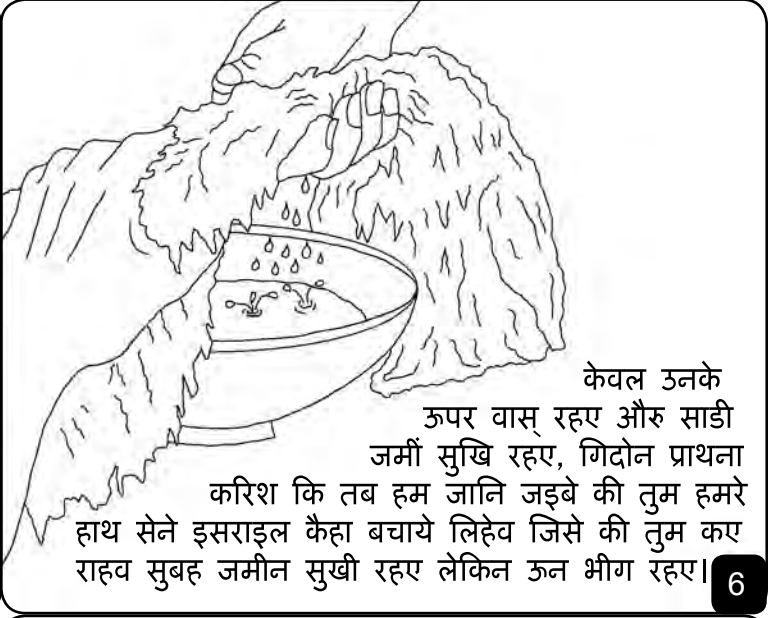 केवल उनके
ऊपर वास् रहए औरु साडी
जमीं सुखि रहए, गिदोन प्राथना
करिश कि तब हम जानि जइबे की तुम हमरे
हाथ सेने इसराइल कैहा बचाये लिहेव जिसे की तुम कए
राहव सुबह जमीन सुखी रहए लेकिन ऊन भीग रहए|
6